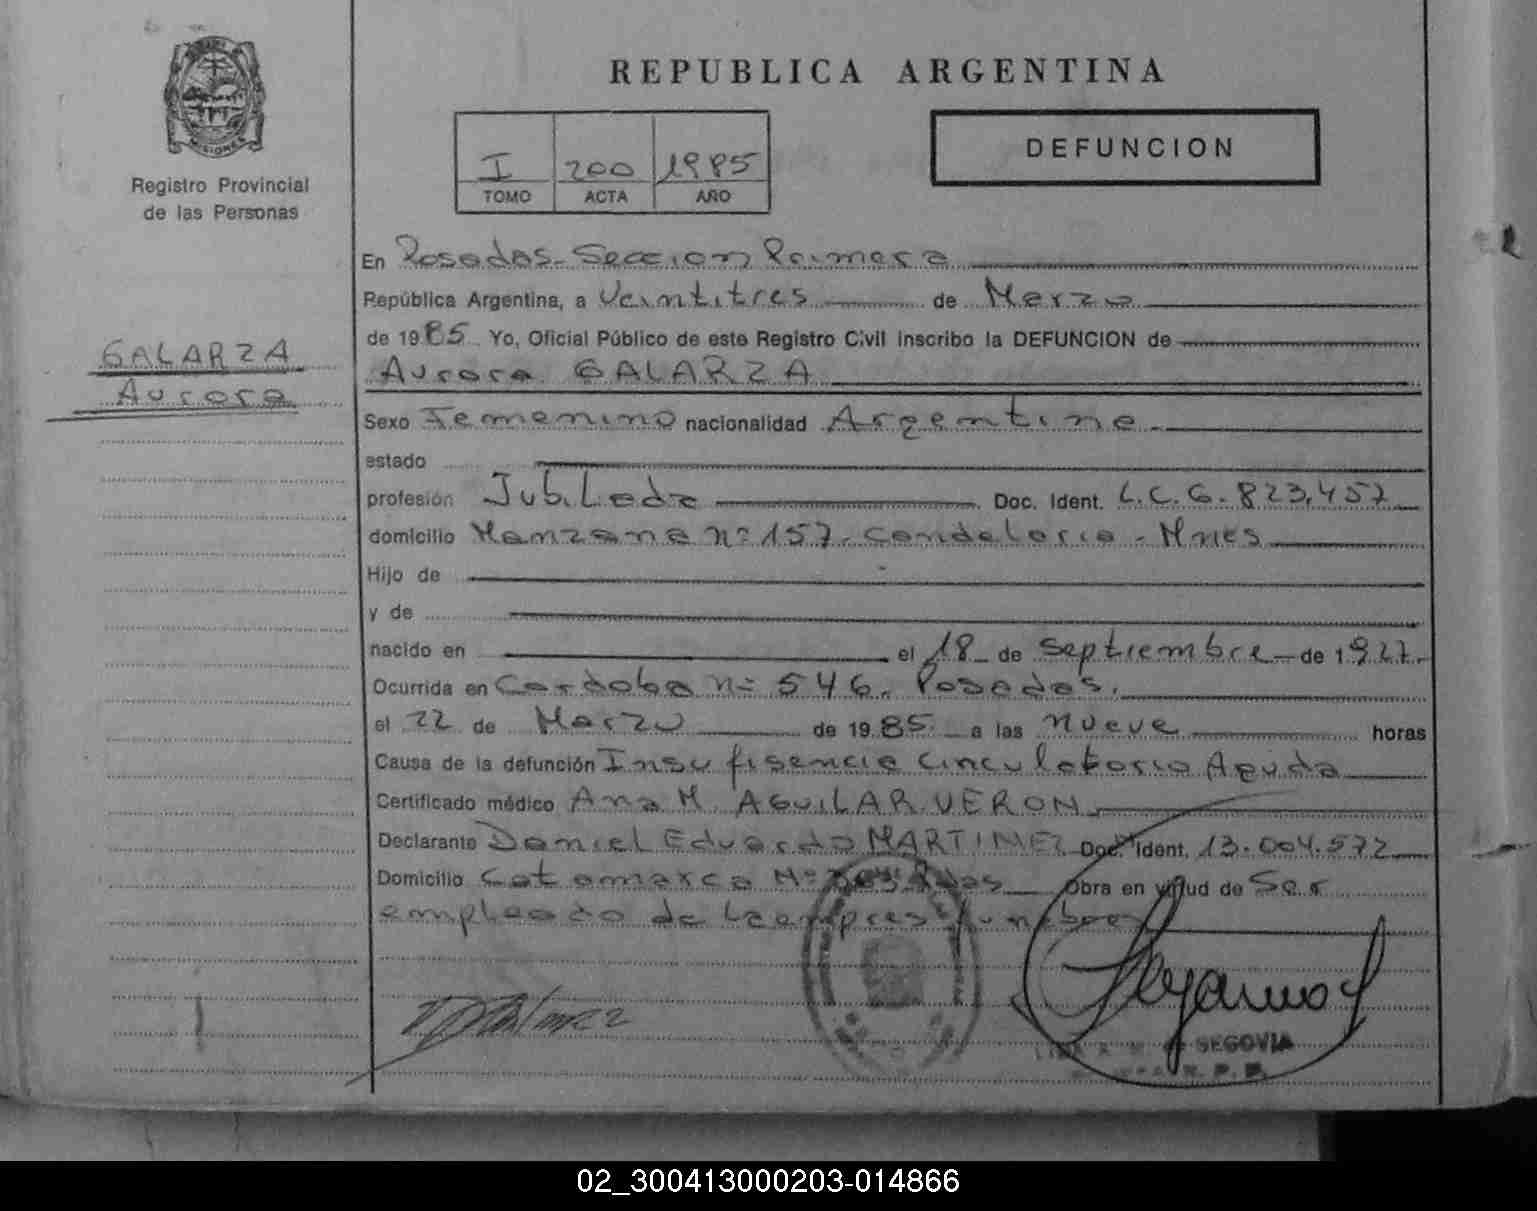 MISIONES
Registro Provincial
de las Personas
GALARZA
Aurora
REPUBLICA ARGENTINA
I 200 1985
TOMO ACTA AÑO
DEFUNCION
En Posadas-Seccion Primera
República Argentina, a Veintitres de Marzo
de 1985 Yo, Oficial Público de este Registro Civil inscribo la DEFUNCION de
Aurora GALARZA
Sexo Femenino nacionalidad Argentina
estado
profesión Jubilada Doc. Ident. L.C.6.823.457
domicilio Manzana nº 157-Candelaria-Mnes
Hijo de
y de
nacido en el 18 de Septiembre de 1927
Ocurrida en Cordoba nº 546. Posadas.
el 22 de Marzo de 1985 a las nueve horas
Causa de la defunción Insufisencia Circulatoria Aguda
Certificado médico Ana M. AGUILAR VERON
Declarante Daniel Eduardo MARTINEZ Doc. Ident. 13.004.572
Domicilio Catamarca Nº Obra en virtud de Ser
empleado de la empresa funebre
SEGOVIA
02_300413000203-014866